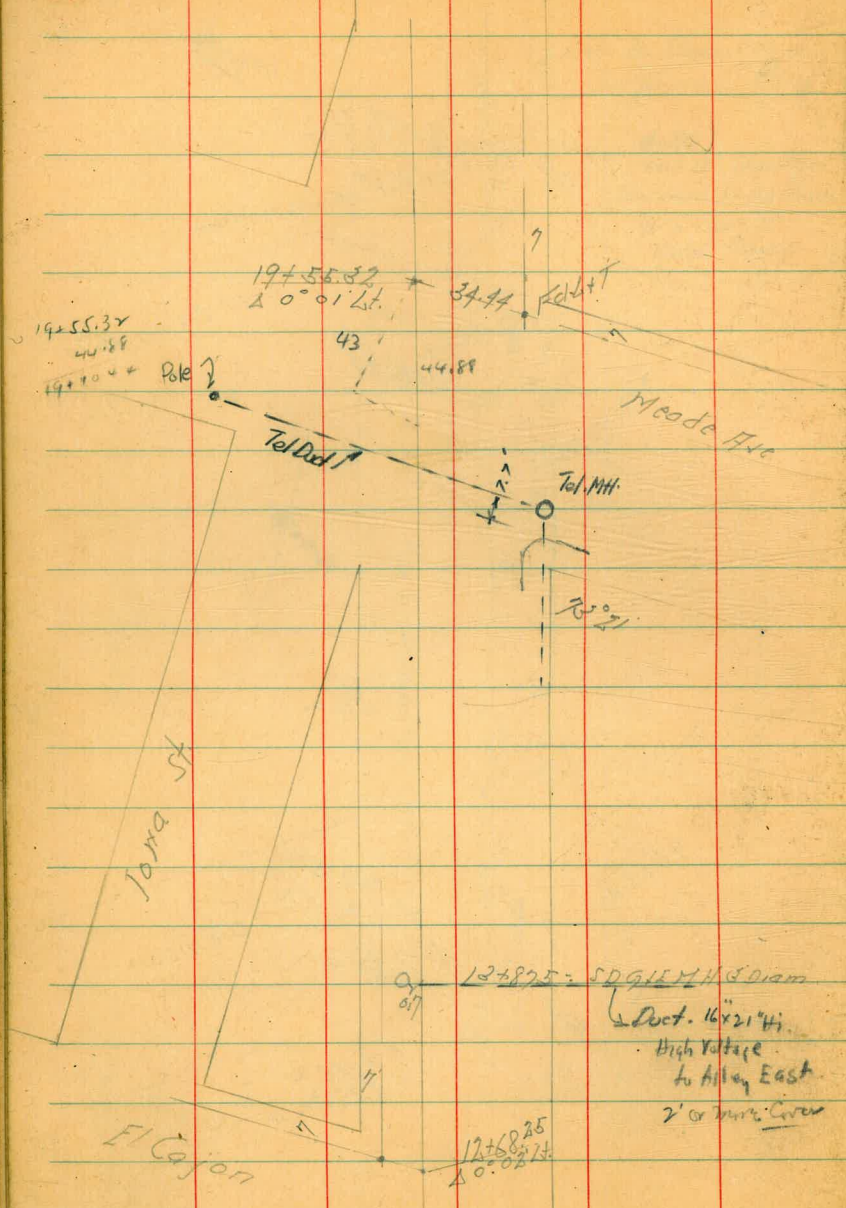 7
19+55.32
Δ 0°01' Lt.
34.44
7
19+55.32
44.88
43
44.88
Pole
Meade Ave
Tel Duct
Tel. MH.
Iowa St
13+875 = SDG+E MH 3' Diam
0.7
Duct. 16"x21" Hi.
High Voltage
to Alley East
2' or more Cover
7
7
El Cajon
12+68.35
Δ 0°02' Lt.